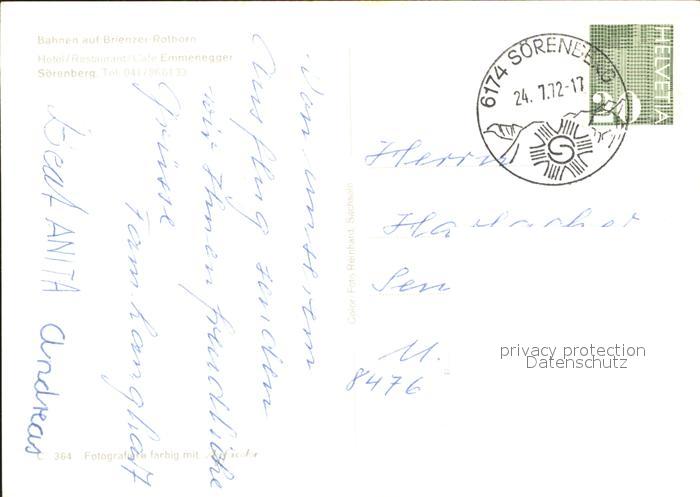 Bahnen auf Brienzer-Rothorn
Hotel/Restaurant/Café Emmenegger
Sörenberg, Tel. 041/86 61 33
Von unserem
Ausflug senden
wir Ihnen freundliche
Grüsse
Fam.
Beat ANITA Andreas
364 Fotografiere farbig mit
Color-Foto Reinhard, Sachseln
6174 SÖRENBERG
24.7.72-17
HELVETIA
30
Herrn
Sen
U.
8476
privacy protection
Datenschutz